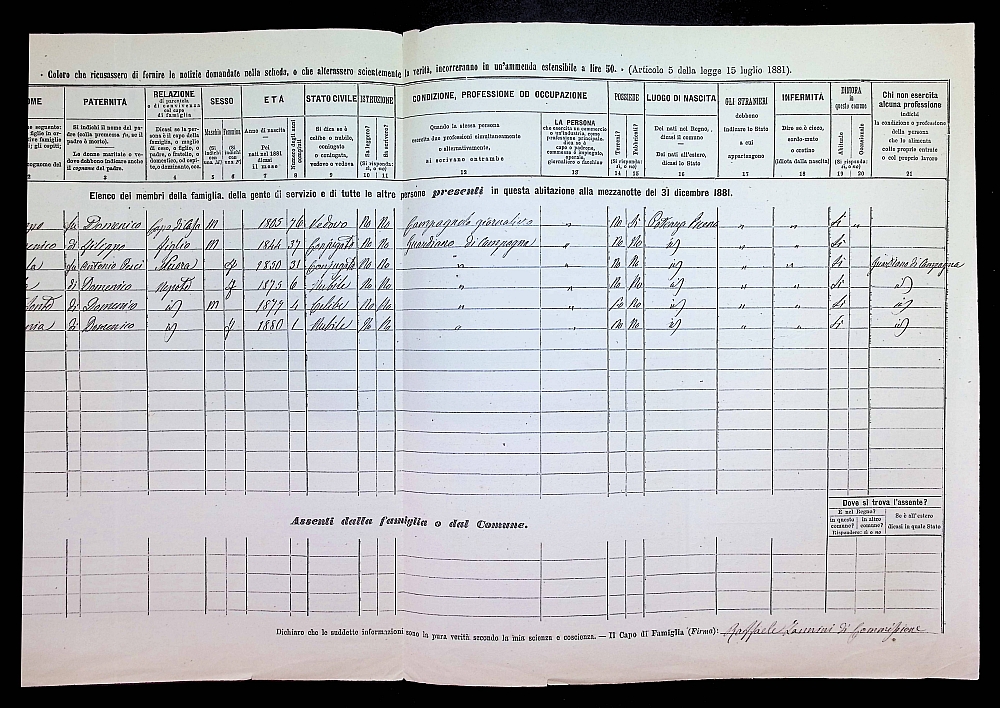 Coloro che ricusassero di fornire le notizie domandate nella scheda, o che alterassero scientemente la verità, incorreranno in un'ammenda estensibile a lire 50. - (Articolo 5 della legge 15 luglio 1881).
OME PATERNITÀ RELAZIONE di parentela o di convivenza col capo di famiglia SESSO ETÀ STATO CIVILE ISTRUZIONE CONDIZIONE, PROFESSIONE OD OCCUPAZIONE POSSIEDE LUOGO DI NASCITA GLI STRANIERI INFERMITÀ DIMORA in questo comune Chi non esercita alcuna professione
Si indichi il nome del padre (colla premessa fu, se il padre è morto). Le donne maritate o vedove debbono indicare anche il cognome del padre.
Dicasi se la persona è il capo della famiglia, o moglie di esso, o figlio, o padre, o fratello, o domestico, od ospite, o dominante, ecc.
Maschio (Si indichi con una M) Femmina (Si indichi con una F)
Anno di nascita — Pei nati nel 1881 dicasi il mese
Numero degli anni compiuti
Si dica se è celibe o nubile, coniugato o coniugata, vedovo o vedova
Sa leggere? Sa scrivere? (Si risponda: sì, o no)
Quando la stessa persona esercita due professioni simultaneamente o alternativamente, si scrivano entrambe
LA PERSONA che esercita un commercio o un'industria, come professione principale, dica se è capo o padrone, commesso o impiegato, operaio, giornaliero o facchino
Terreni? Fabbricati? (Si risponda: sì, o no)
Dei nati nel Regno, dicasi il comune — Dei nati all'estero, dicasi lo Stato
debbono indicare lo Stato a cui appartengono
Dire se è cieco, sordo-muto o cretino (Idiota dalla nascita)
Abituale Occasionale (Si risponda: sì, o no)
indichi la condizione o professione della persona che lo alimenta colle proprie entrate o col proprio lavoro
3 4 5 6 7 8 9 10 11 12 13 14 15 16 17 18 19 20 21
Elenco dei membri della famiglia, della gente di servizio e di tutte le altre persone presenti in questa abitazione alla mezzanotte del 31 dicembre 1881.
fu Domenico Capo di Casa M 1805 76 Vedovo No No Campagnolo giornaliero No Si " " Si "
di Figlio 1844 37 Coniugato No No Guardiano di Campagna " No No id " " Si
fu Antonio Nuora f 1850 31 Coniugata No No " " No No id " " Si Guardiano di Campagna
di Domenico Nepote f 1875 6 Nubile No No " " No No id " " Si id
di Domenico id M 1877 4 Celibe No No " " No No id " " Si id
di Domenico id f 1880 1 Nubile No No " " No No id " " Si id
Assenti dalla famiglia o dal Comune.
Dove si trova l'assente?
È nel Regno? in questo comune? in altro comune? Rispondere: sì o no
Se è all'estero dicasi in quale Stato
Dichiaro che le suddette informazioni sono la pura verità secondo la mia scienza e coscienza. — Il Capo di Famiglia (Firma): Raffaele Zannini di Commissione